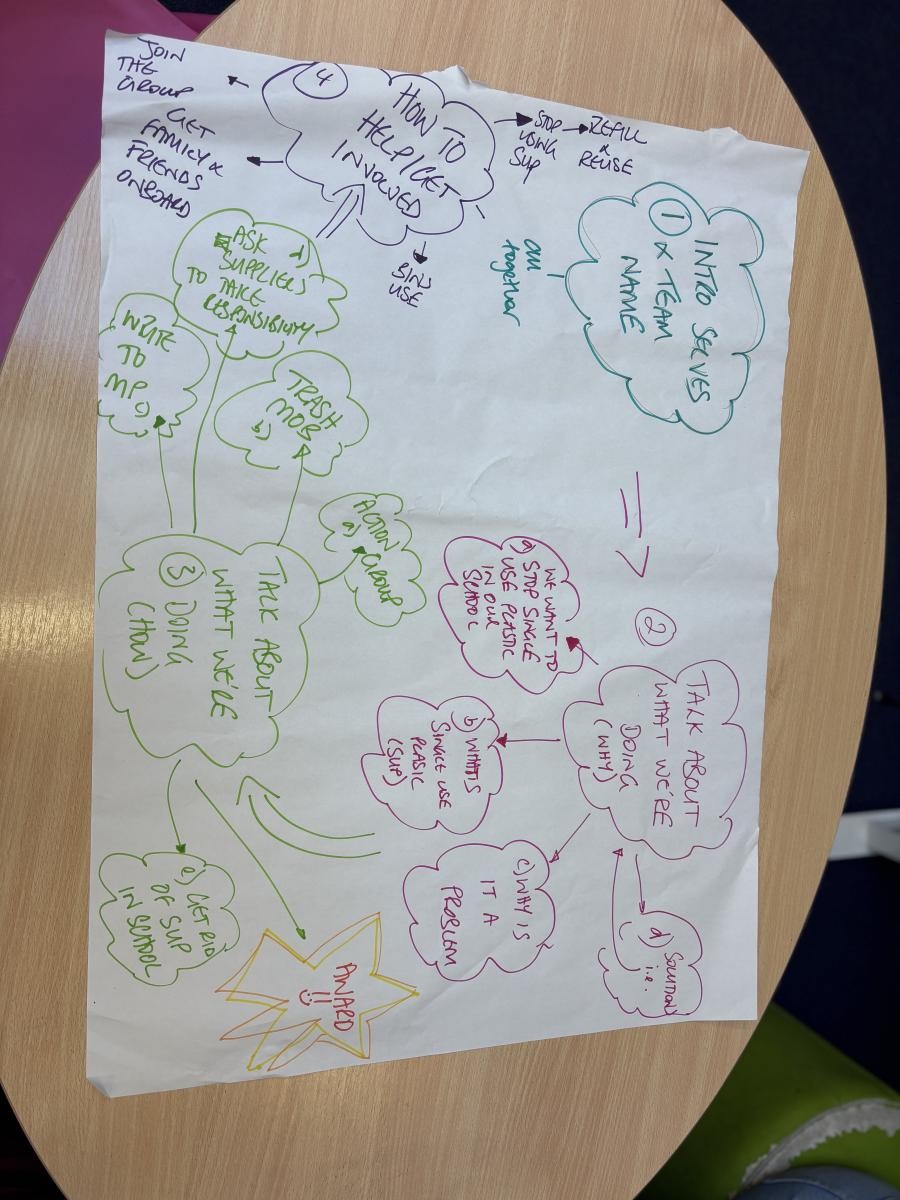 INTRO SELVES
① & TEAM
NAME
all
together
②
TALK ABOUT
WHAT WE'RE
DOING
(WHY)
WE WANT TO
a) STOP SINGLE
USE PLASTIC
IN OUR
SCHOOL
b) WHAT IS
SINGLE USE
PLASIC
(SUP)
c) WHY IS
IT A
PROBLEM
d) SOLUTIONS
i.e.
TALK ABOUT
WHAT WE'RE
③ DOING
(HOW)
ACTION
a) GROUP
TRASH
MOB
b)
WRITE
TO
MP c)
d)
ASK
SUPPLIERS
TO TAKE
RESPONSIBILITY
e) GET RID
OF SUP
IN SCHOOL
AWARD
!!
④
HOW TO
HELP/GET
INVOLVED
STOP
USING
SUP
REFILL
&
REUSE
BINS
USE
GET
FAMILY &
FRIENDS
ONBOARD
JOIN
THE
GROUP